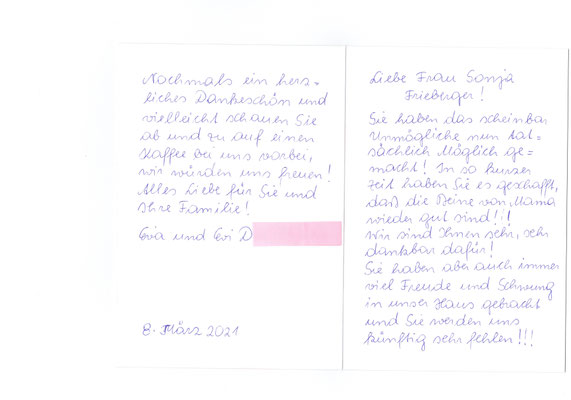 Liebe Frau Sonja
Frieberger!
Sie haben das scheinbar
Unmögliche nun tat=
sächlich Möglich ge=
macht! In so kurzer
Zeit haben Sie es geschafft,
daß die Beine von Mama
wieder gut sind!!!
Wir sind Ihnen sehr, sehr
dankbar dafür!
Sie haben aber auch immer
viel Freude und Schwung
in unser Haus gebracht
und Sie werden uns
künftig sehr fehlen!!!
Nochmals ein herz=
liches Dankeschön und
vielleicht schauen Sie
ab und zu auf einen
Kaffee bei uns vorbei,
wir würden uns freuen!
Alles Liebe für Sie und
Ihre Familie!
Eva und Evi D
8. März 2021